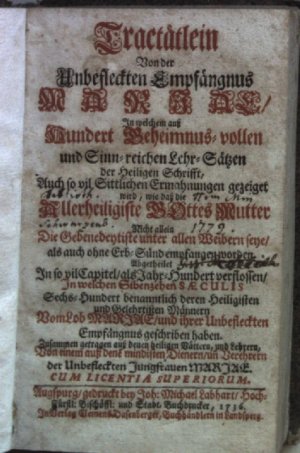 Tractätlein
Von der
Unbefleckten Empfängnus
MARIAE/
In welchem auß
Hundert Geheimnus-vollen
und Sinn-reichen Lehr-Sätzen
der Heiligen Schrifft,
Auch so vil Sittlichen Ermahnungen gezeiget
wird, wie daß die
Allerheiligste GOttes Mutter
Nicht allein
1779
Die Gebenedeytiste unter allen Weibern seye/
als auch ohne Erb-Sünd empfangen worden.
Abgetheilet
In so vil Capitel/als Jahr-Hundert verflossen/
In welchen Sibenzehen SÆCULIS
Sechs-Hundert benanntlich deren Heiligisten
und Gelehrtisten Männern
Vom Lob MARIAE/und ihrer Unbefleckten
Empfängnus geschriben haben.
Zusammen getragen auß denen heiligen Vättern, und Lehrern,
Von einem auß denen mindisten Dienern/un Verehrern
der Unbefleckten Jungfrauen MARIAE.
CUM LICENTIA SUPERIORUM.
Augspurg/gedruckt bey Joh. Michael Labhart/Hoch-
Fürstl. Bischöffl. und Stadt-Buchdrucker, 1736.
In Verlag Dasenberger, Buchhändlern in Landsperg.